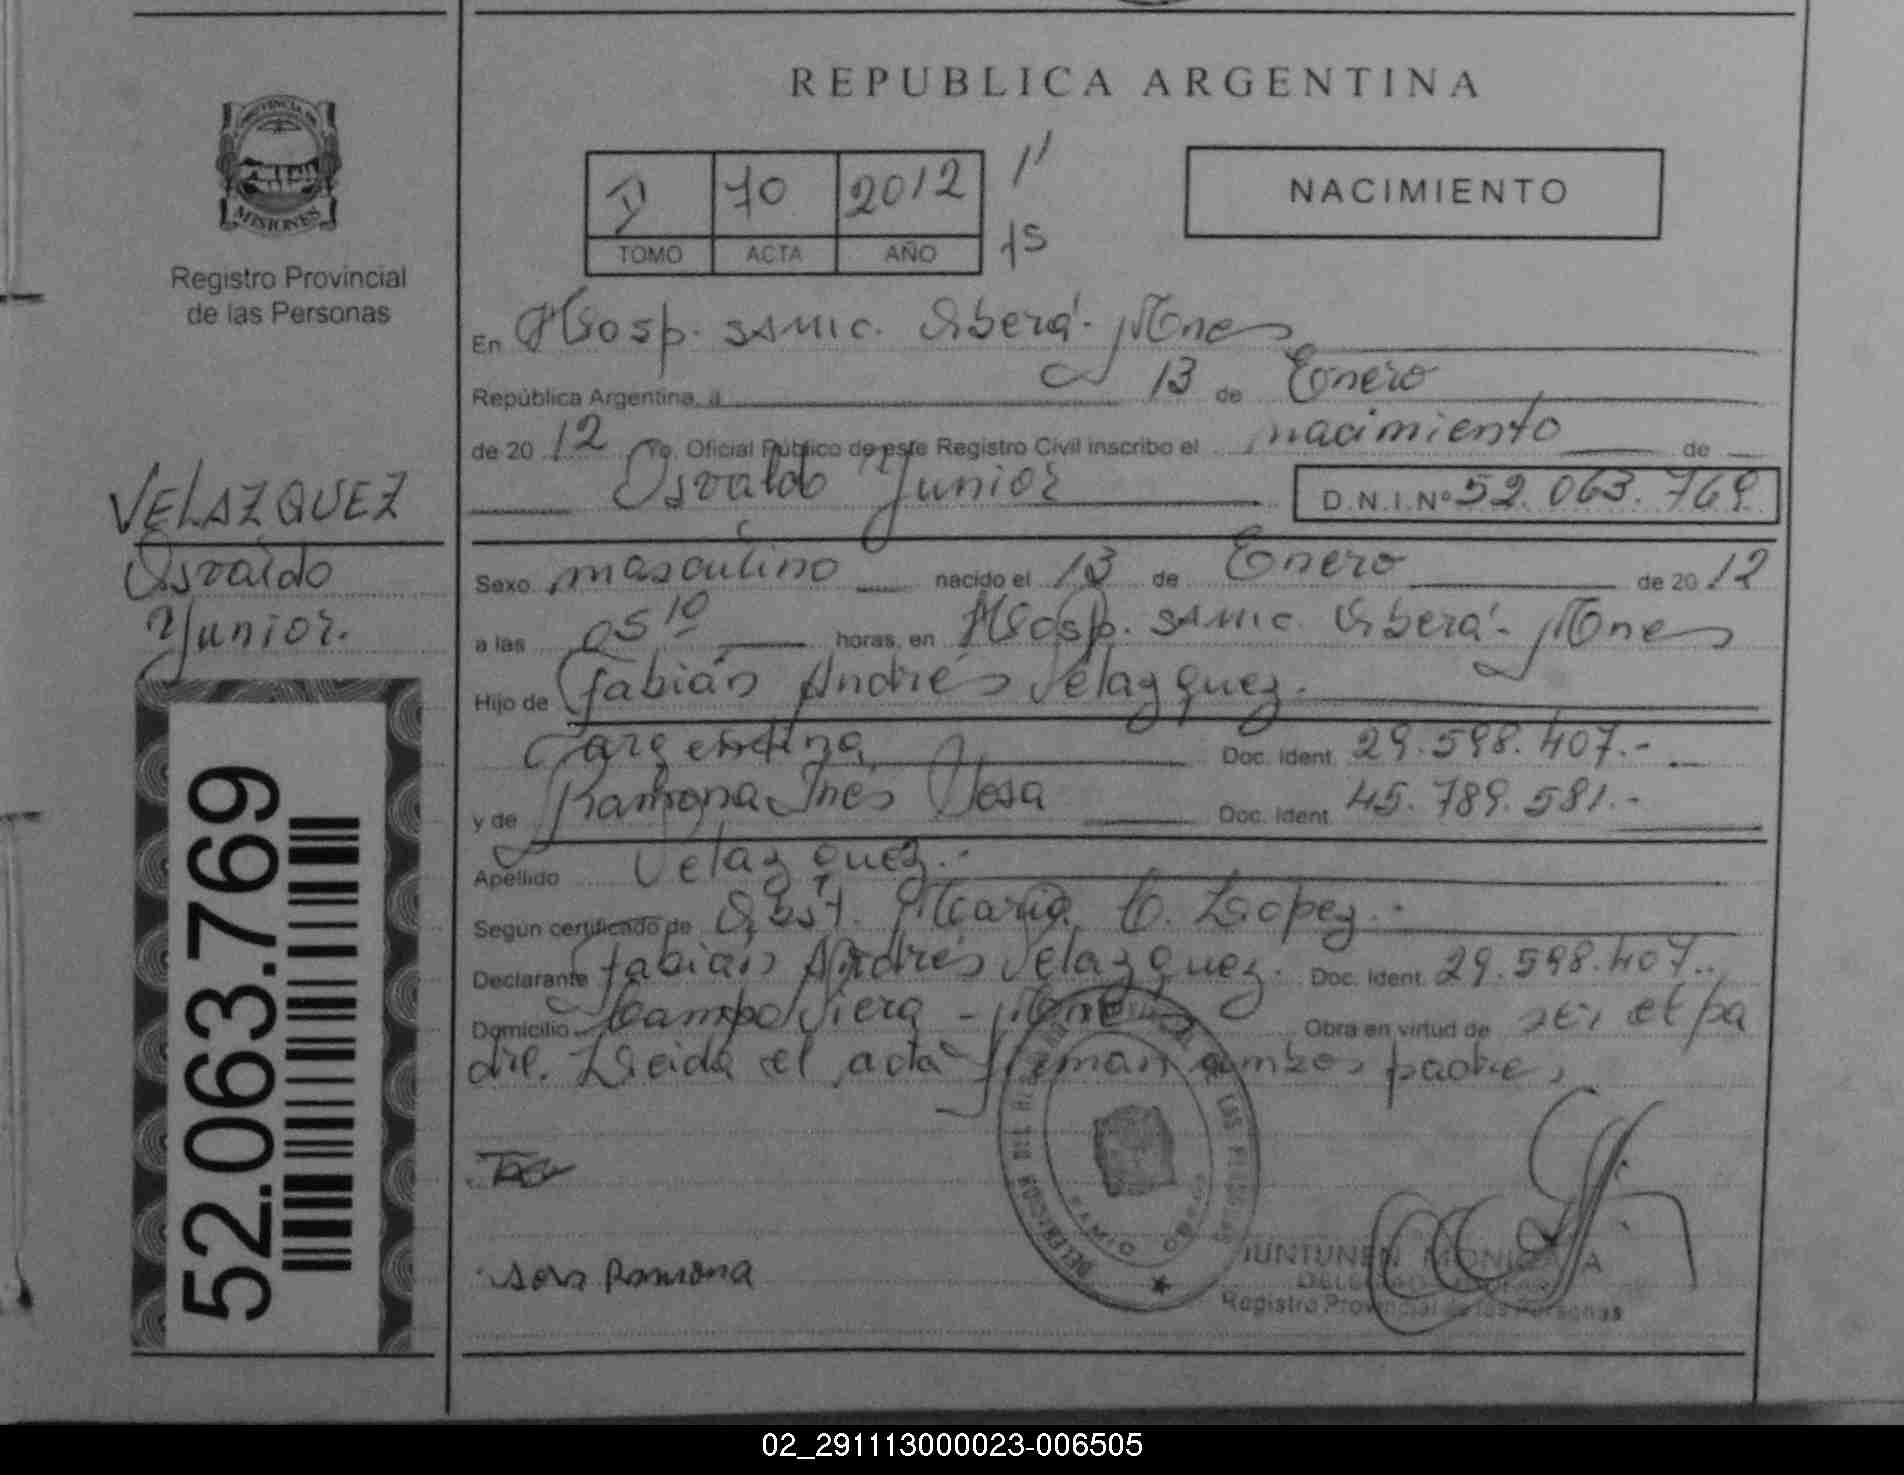 REPUBLICA ARGENTINA
PROVINCIA DE
MISIONES
Registro Provincial
de las Personas
II 70 2012
TOMO ACTA AÑO
1'
15
NACIMIENTO
En Hosp. SAMIC. Oberá - Mnes
República Argentina, a 13 de Enero
de 2012 Yo, Oficial Público de este Registro Civil inscribo el nacimiento de
Osvaldo Yunior D.N.I.Nº 52.063.769
VELAZQUEZ
Osvaldo
Yunior.
Sexo masculino nacido el 13 de Enero de 2012
a las 05 10 horas, en Hosp. SAMIC. Oberá - Mnes
Hijo de Fabián Andrés Velazquez.
argentina Doc. Ident. 29.598.407.-
y de Ramona Inés Sosa Doc. Ident. 45.789.581.-
Apellido Velazquez.-
Según certificado de Obst. María C. Lopez.-
Declarante Fabián Andrés Velazquez. Doc. Ident. 29.598.407.-
Domicilio Campo Viera - Mnes Obra en virtud de ser el pa
dre. Leida el acta firman ambos padres
52.063.769
sosa Ramona
JUNTUNEN MONICA
Registro Provincial de las Personas
02_291113000023-006505